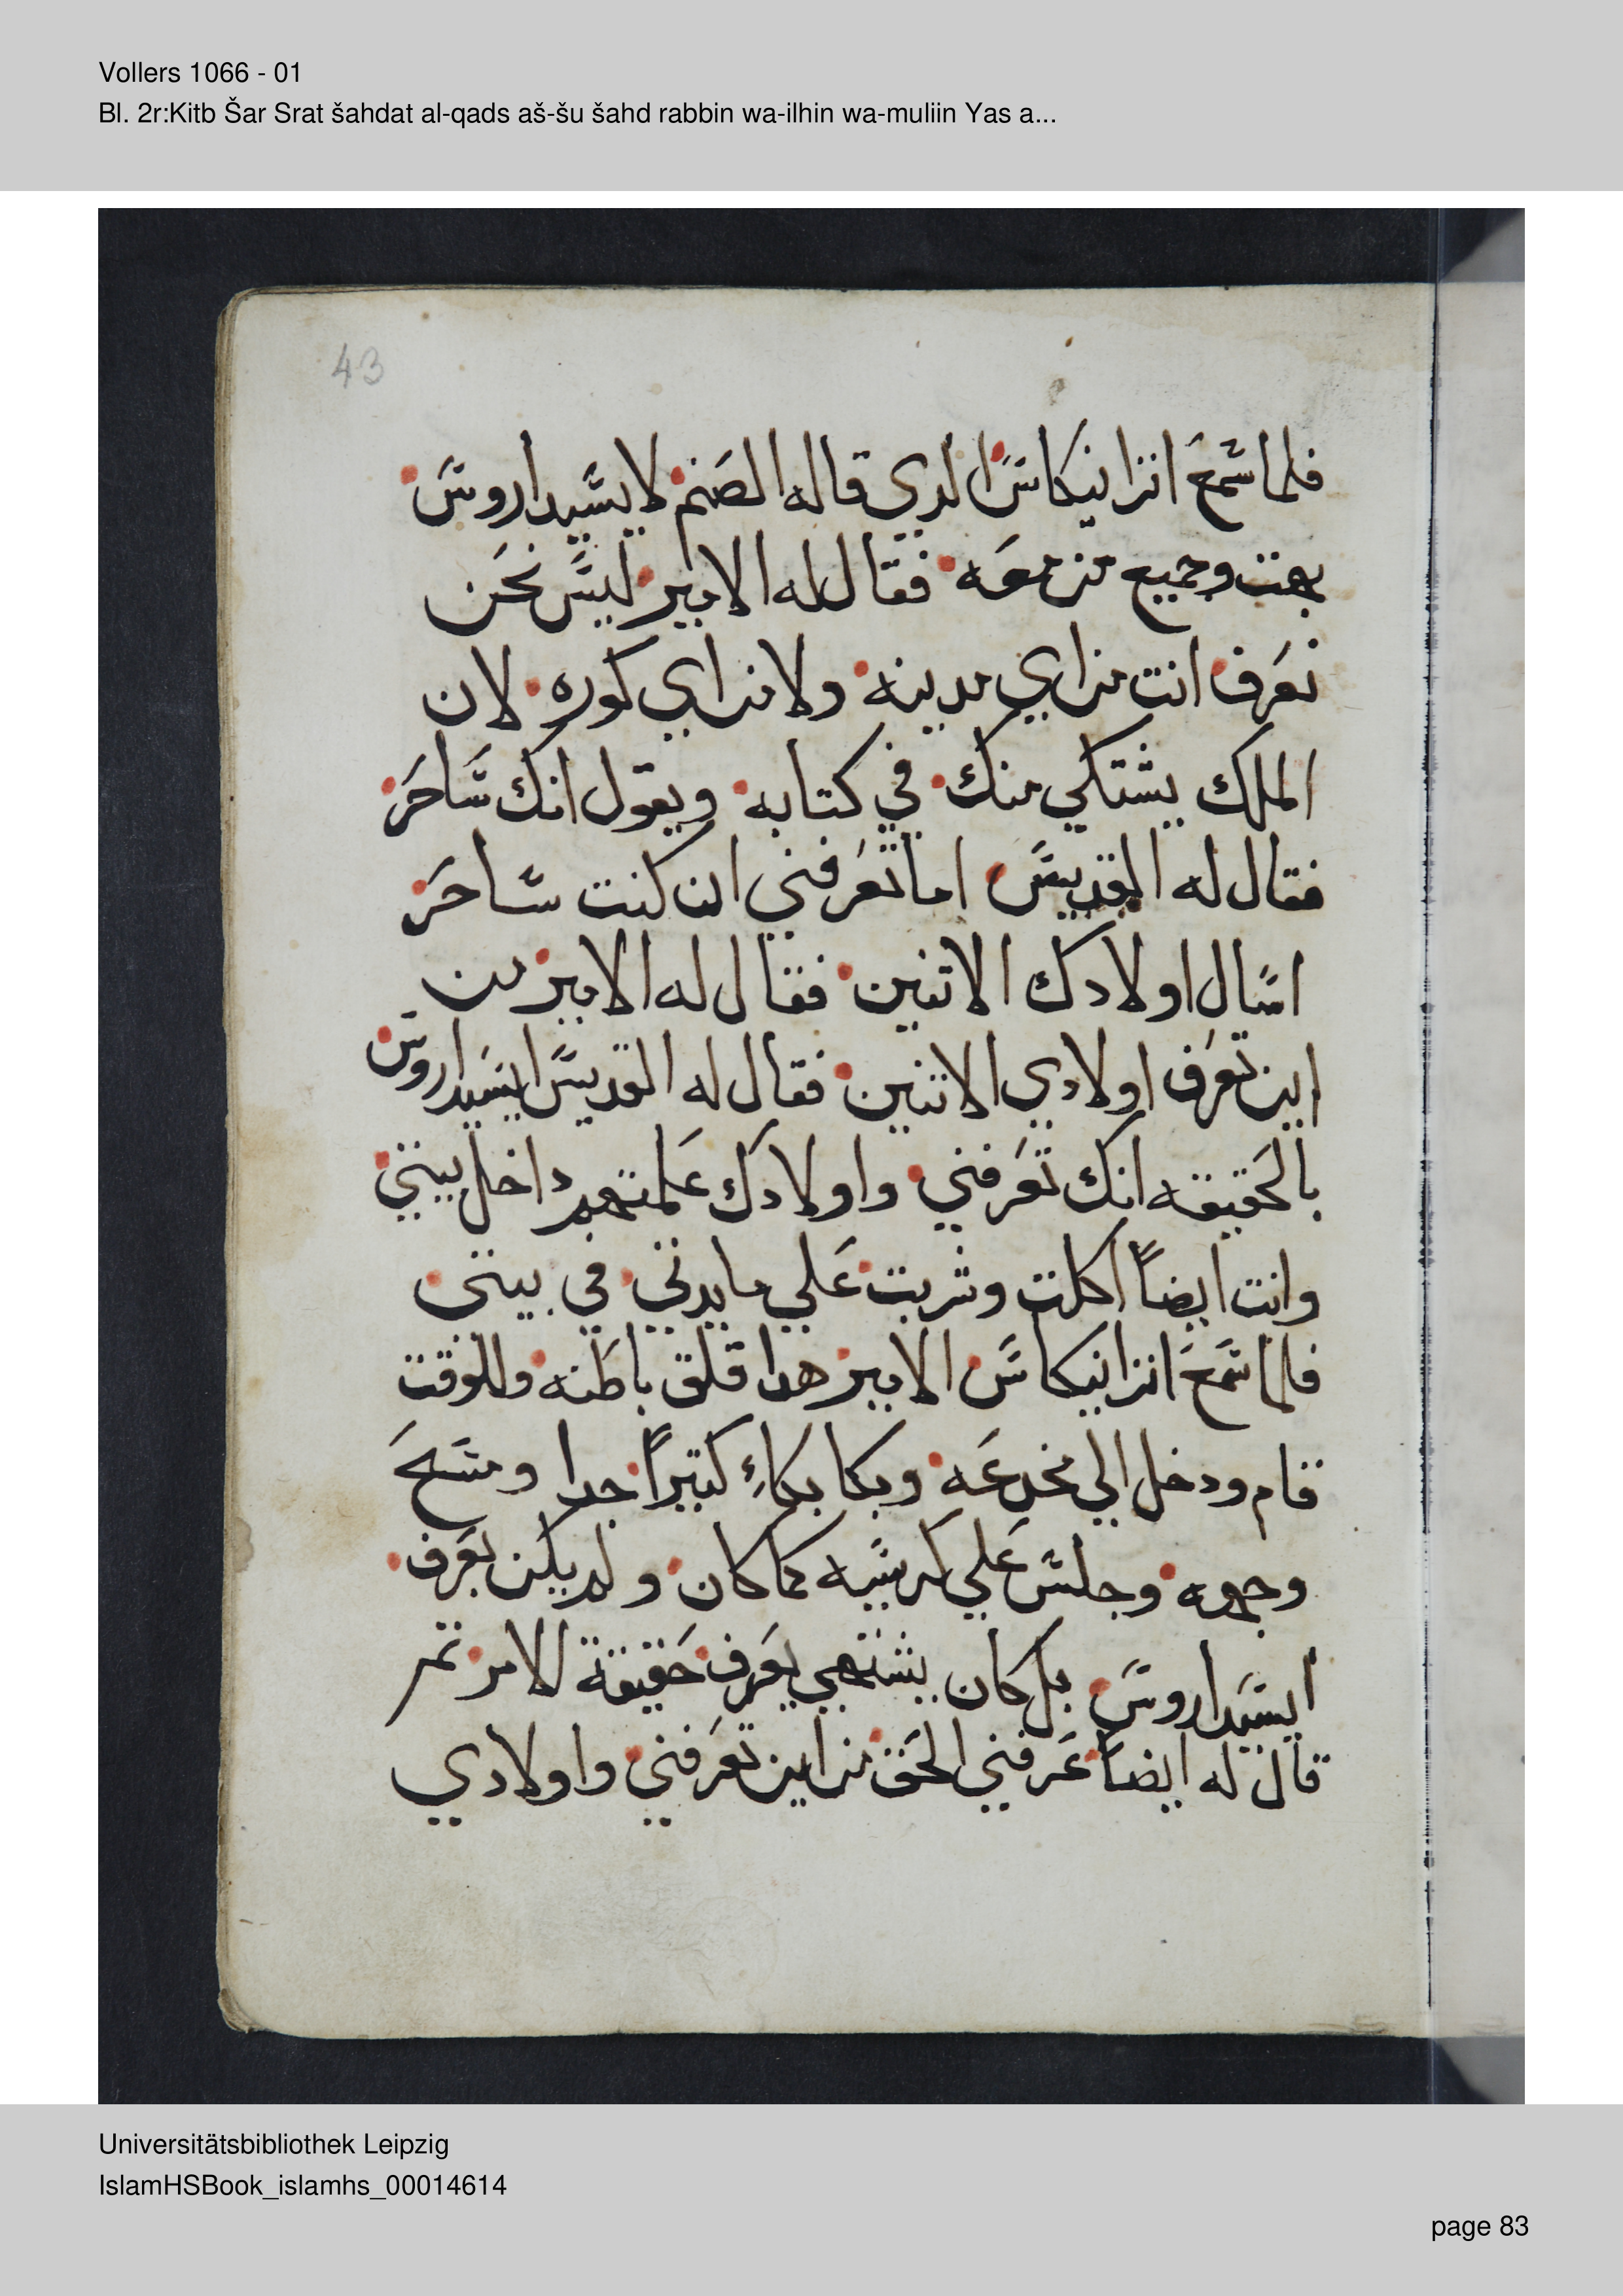 Vollers 1066 - 01
Bl. 2r:Kitb Šar Srat šahdat al-qads aš-šu šahd rabbin wa-ilhin wa-muliin Yas a...
43
فلما سمع انزانيكاس الدي قاله الصنم لايسيداروس
بهت وجميع من معه فقال له الامير ليس نحن
نعرف انت من اي مدينه ولا من اي كوره لان
الملك يشتكي منك في كتابه ويقول انك ساحر
فقال له القديس اما تعرفني ان كنت ساحر
اسال اولادك الاتنين فقال له الامير من
اين تعرف اولادي الاتنين فقال له القديس ايسيداروس
بالحقيقه انك تعرفني واولادك علمتهم داخل بيتي
وانت ايضاً اكلت وشربت علي مايدتي في بيتى
فلما سمع انزانيكاس الامير هدا قلق باطنه وللوقت
قام ودخل الي مخدعه وبكا بكاءِ كتيراً جدا ومسح
وجهه وجلس علي كرسيه كما كان ولم يكن يعرف
ايسيداروس بل كان يشتهي يعرف حقيقة الامر تم
قال له ايضاً عرفني الحق من اين تعرفني واولادي
Universitätsbibliothek Leipzig
IslamHSBook_islamhs_00014614
page 83